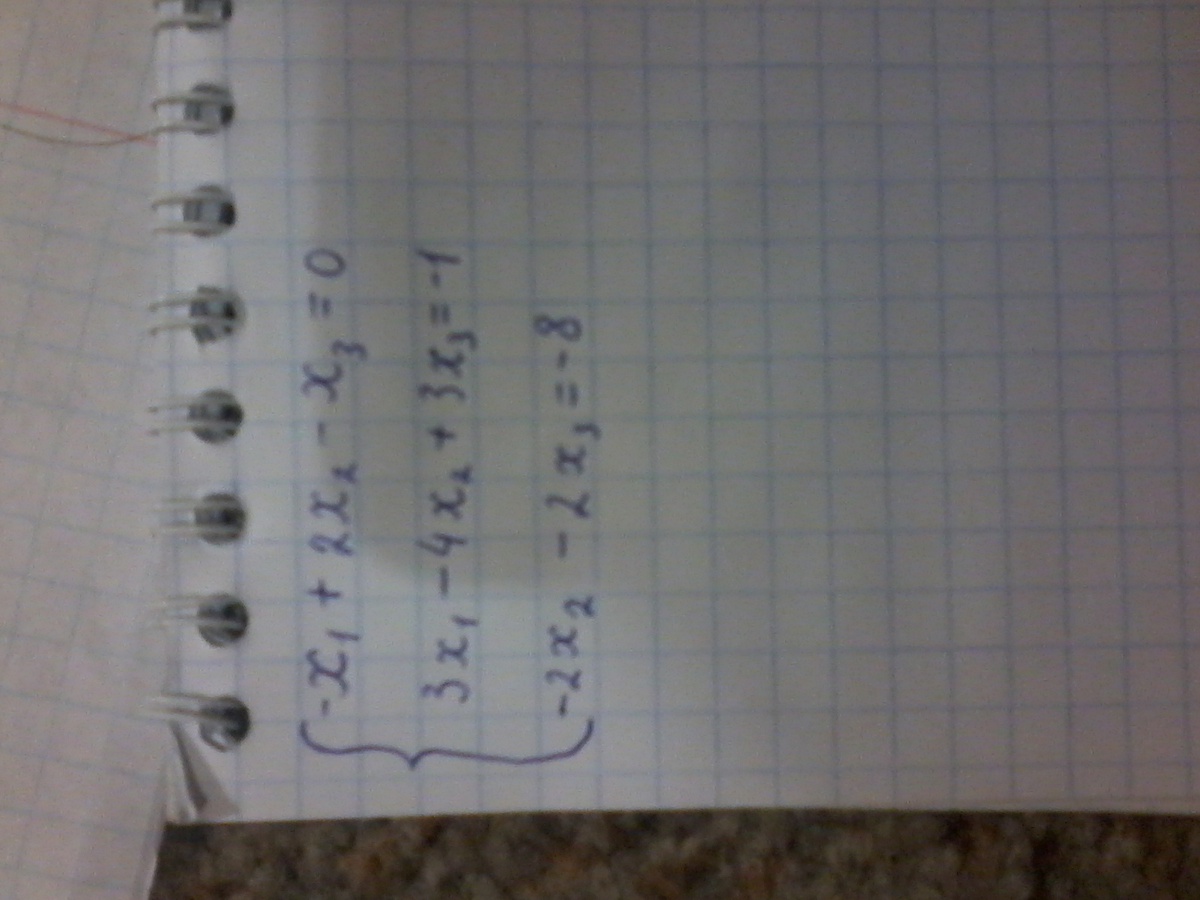 -x₁ + 2x₂ - x₃ = 0
3x₁ - 4x₂ + 3x₃ = -1
-2x₂ - 2x₃ = -8